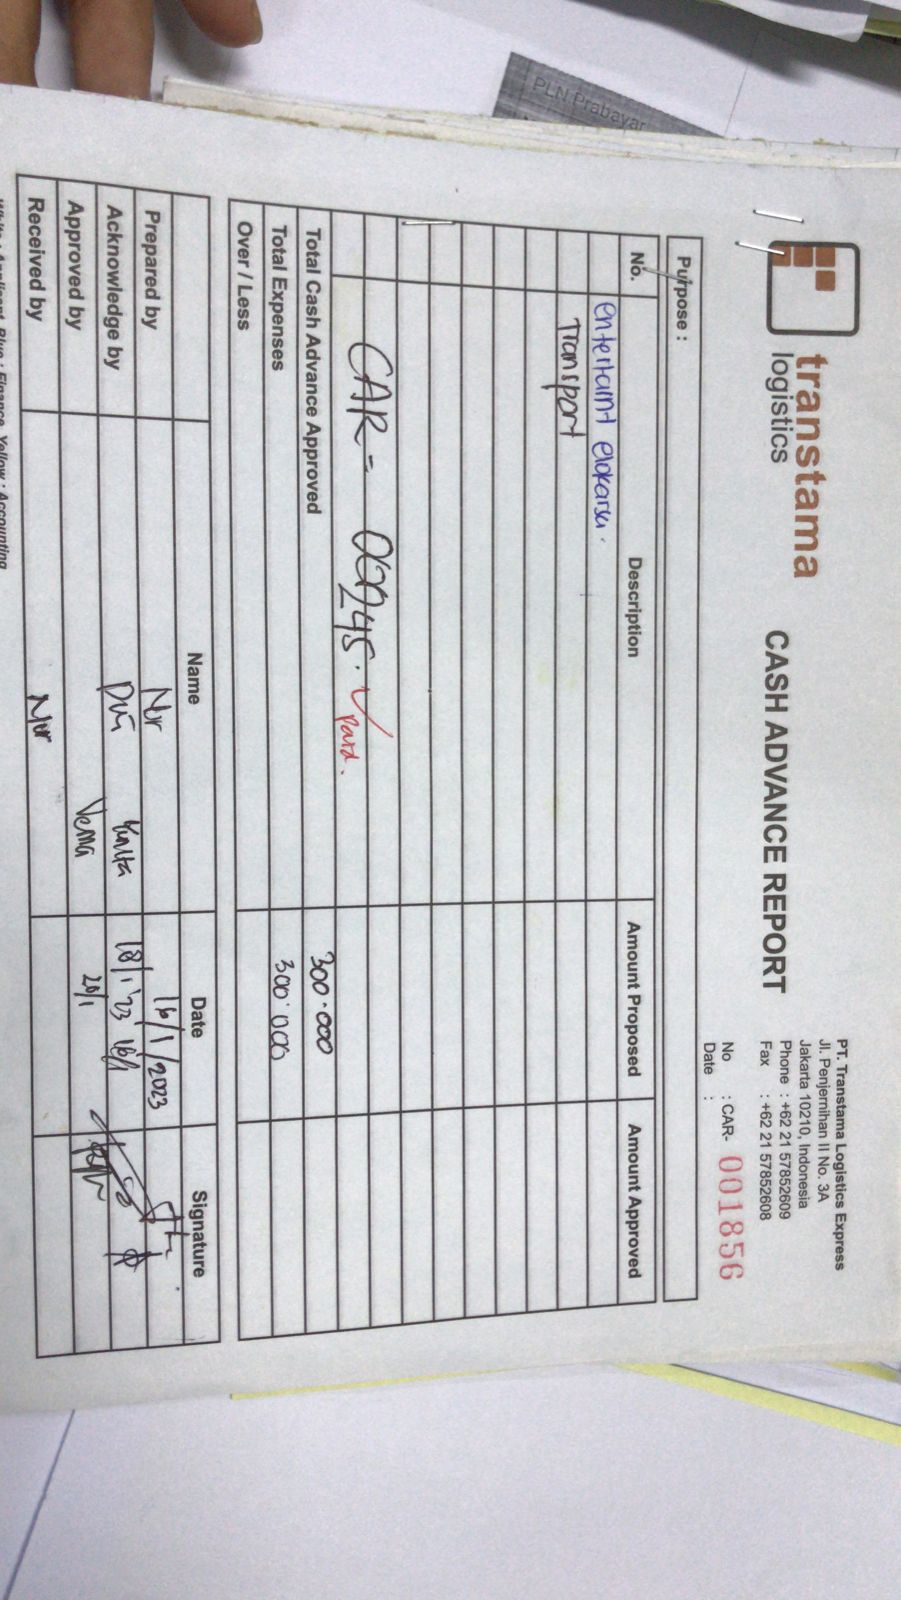 PLN Prabayar
transtama
logistics
CASH ADVANCE REPORT
PT. Transtama Logistics Express
Jl. Penjernihan II No. 3A
Jakarta 10210, Indonesia
Phone : +62 21 57852609
Fax : +62 21 57852608
No : CAR- 001856
Date :
Purpose :
No. Description Amount Proposed Amount Approved
Transport
CAR - 00245. Paid.
Total Cash Advance Approved 300.000
Total Expenses 300.000
Over / Less
Name Date Signature
Prepared by Nur 16/1/2023
Acknowledge by Dwi 18/1 '23
Approved by Vema 20/1
Received by Nur
White : Applicant, Blue : Finance, Yellow : Accounting